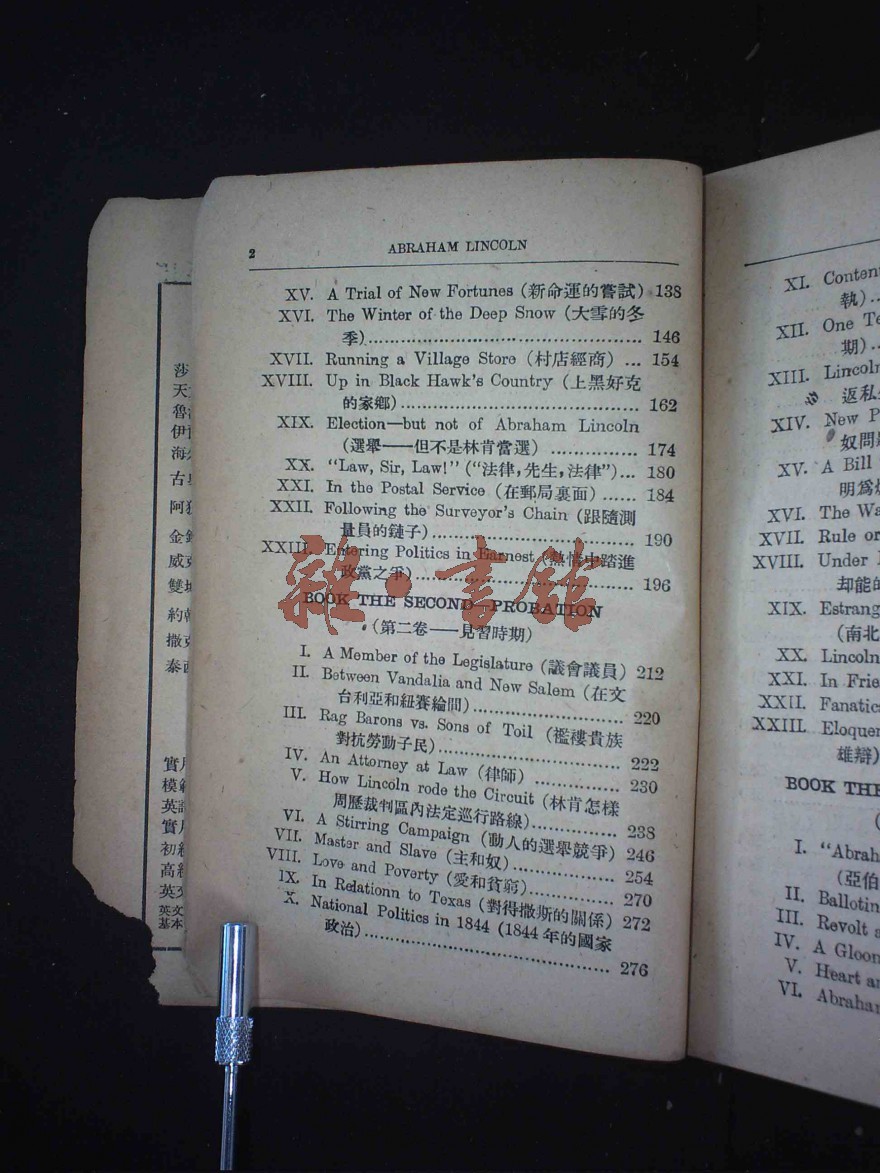 2 ABRAHAM LINCOLN
XV. A Trial of New Fortunes (新命運的嘗試) 138
XVI. The Winter of the Deep Snow (大雪的冬
季)................................................ 146
XVII. Running a Village Store (村店經商) ... 154
XVIII. Up in Black Hawk's Country (上黑好克
的家鄉).......................................... 162
XIX. Election—but not of Abraham Lincoln
(選舉——但不是林肯當選) ............... 174
XX. "Law, Sir, Law!" ("法律,先生,法律")... 180
XXI. In the Postal Service (在郵局裏面) ...... 184
XXII. Following the Surveyor's Chain (跟隨測
量員的鏈子).................................... 190
XXIII. Entering Politics in Earnest (熱情中踏進
政黨之爭)....................................... 196
BOOK THE SECOND—PROBATION
(第二卷——見習時期)
I. A Member of the Legislature (議會議員) 212
II. Between Vandalia and New Salem (在文
台利亞和紐賽綸間)........................... 220
III. Rag Barons vs. Sons of Toil (襤褸貴族
對抗勞動子民)................................. 222
IV. An Attorney at Law (律師) ............... 230
V. How Lincoln rode the Circuit (林肯怎樣
周歷裁判區內法定巡行路線)............... 238
VI. A Stirring Campaign (動人的選舉競爭) 246
VII. Master and Slave (主和奴).................. 254
VIII. Love and Poverty (愛和貧窮)............... 270
IX. In Relationn to Texas (對得撒斯的關係) 272
X. National Politics in 1844 (1844年的國家
政治)............................................. 276
雜·書館
XI.
執)
XII. One
期)
XIII.
返私
XIV. New
奴問
XV. A Bill
明爲
XVI. The
XVII. Rule or
XVIII. Under
却能的
XIX.
(南北
XX. Lincoln
XXI. In
XXII.
XXIII.
雄辯)
BOOK THE
I.
(亞伯
II.
III. Revolt
IV. A
V. Heart
VI.
莎
天
魯
伊
海
古
阿
金
威
雙城
約翰
撒克
泰西
實用
模範
英
實用
初級
高級
英文
英文
基本